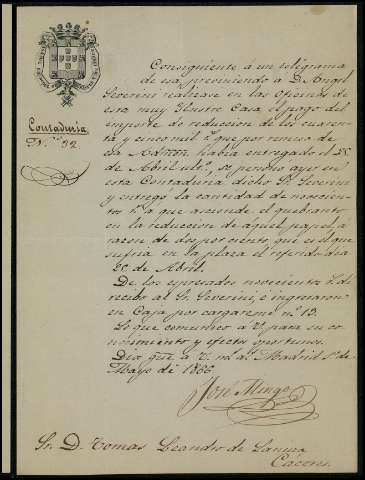 Contaduría
N.º 92
Consiguiente á un telégrama
de esa previniendo á D. Angel
Severini realizase en las Oficinas de
esta muy Ilustre Casa el pago del
importe de reduccion de los cuarenta
y cinco mil r.s que por remesa de
esa Admon. habia entregado el 20
de Abril ult.º, se personó ayer en
esta Contaduria dicho Sr. Severini
y entregó la cantidad de novecien-
tos r.s á que asciende el quebranto
en la reduccion de aquel papel, á
razon de dos por ciento que es el que
sufria en la plaza el referido dia
20 de Abril.
De los espresados novecientos r.s dí
recibo al Sr. Severini, é ingresaron
en Caja por cargareme n.º 13.
Lo que comunico á V. para su co-
nocimiento y efectos oportunos.
Dios gue á V. m. a.s Madrid 1.º de
Mayo de 1866
José Mingo
Sr. D. Tomas Leandro de
Cáceres.